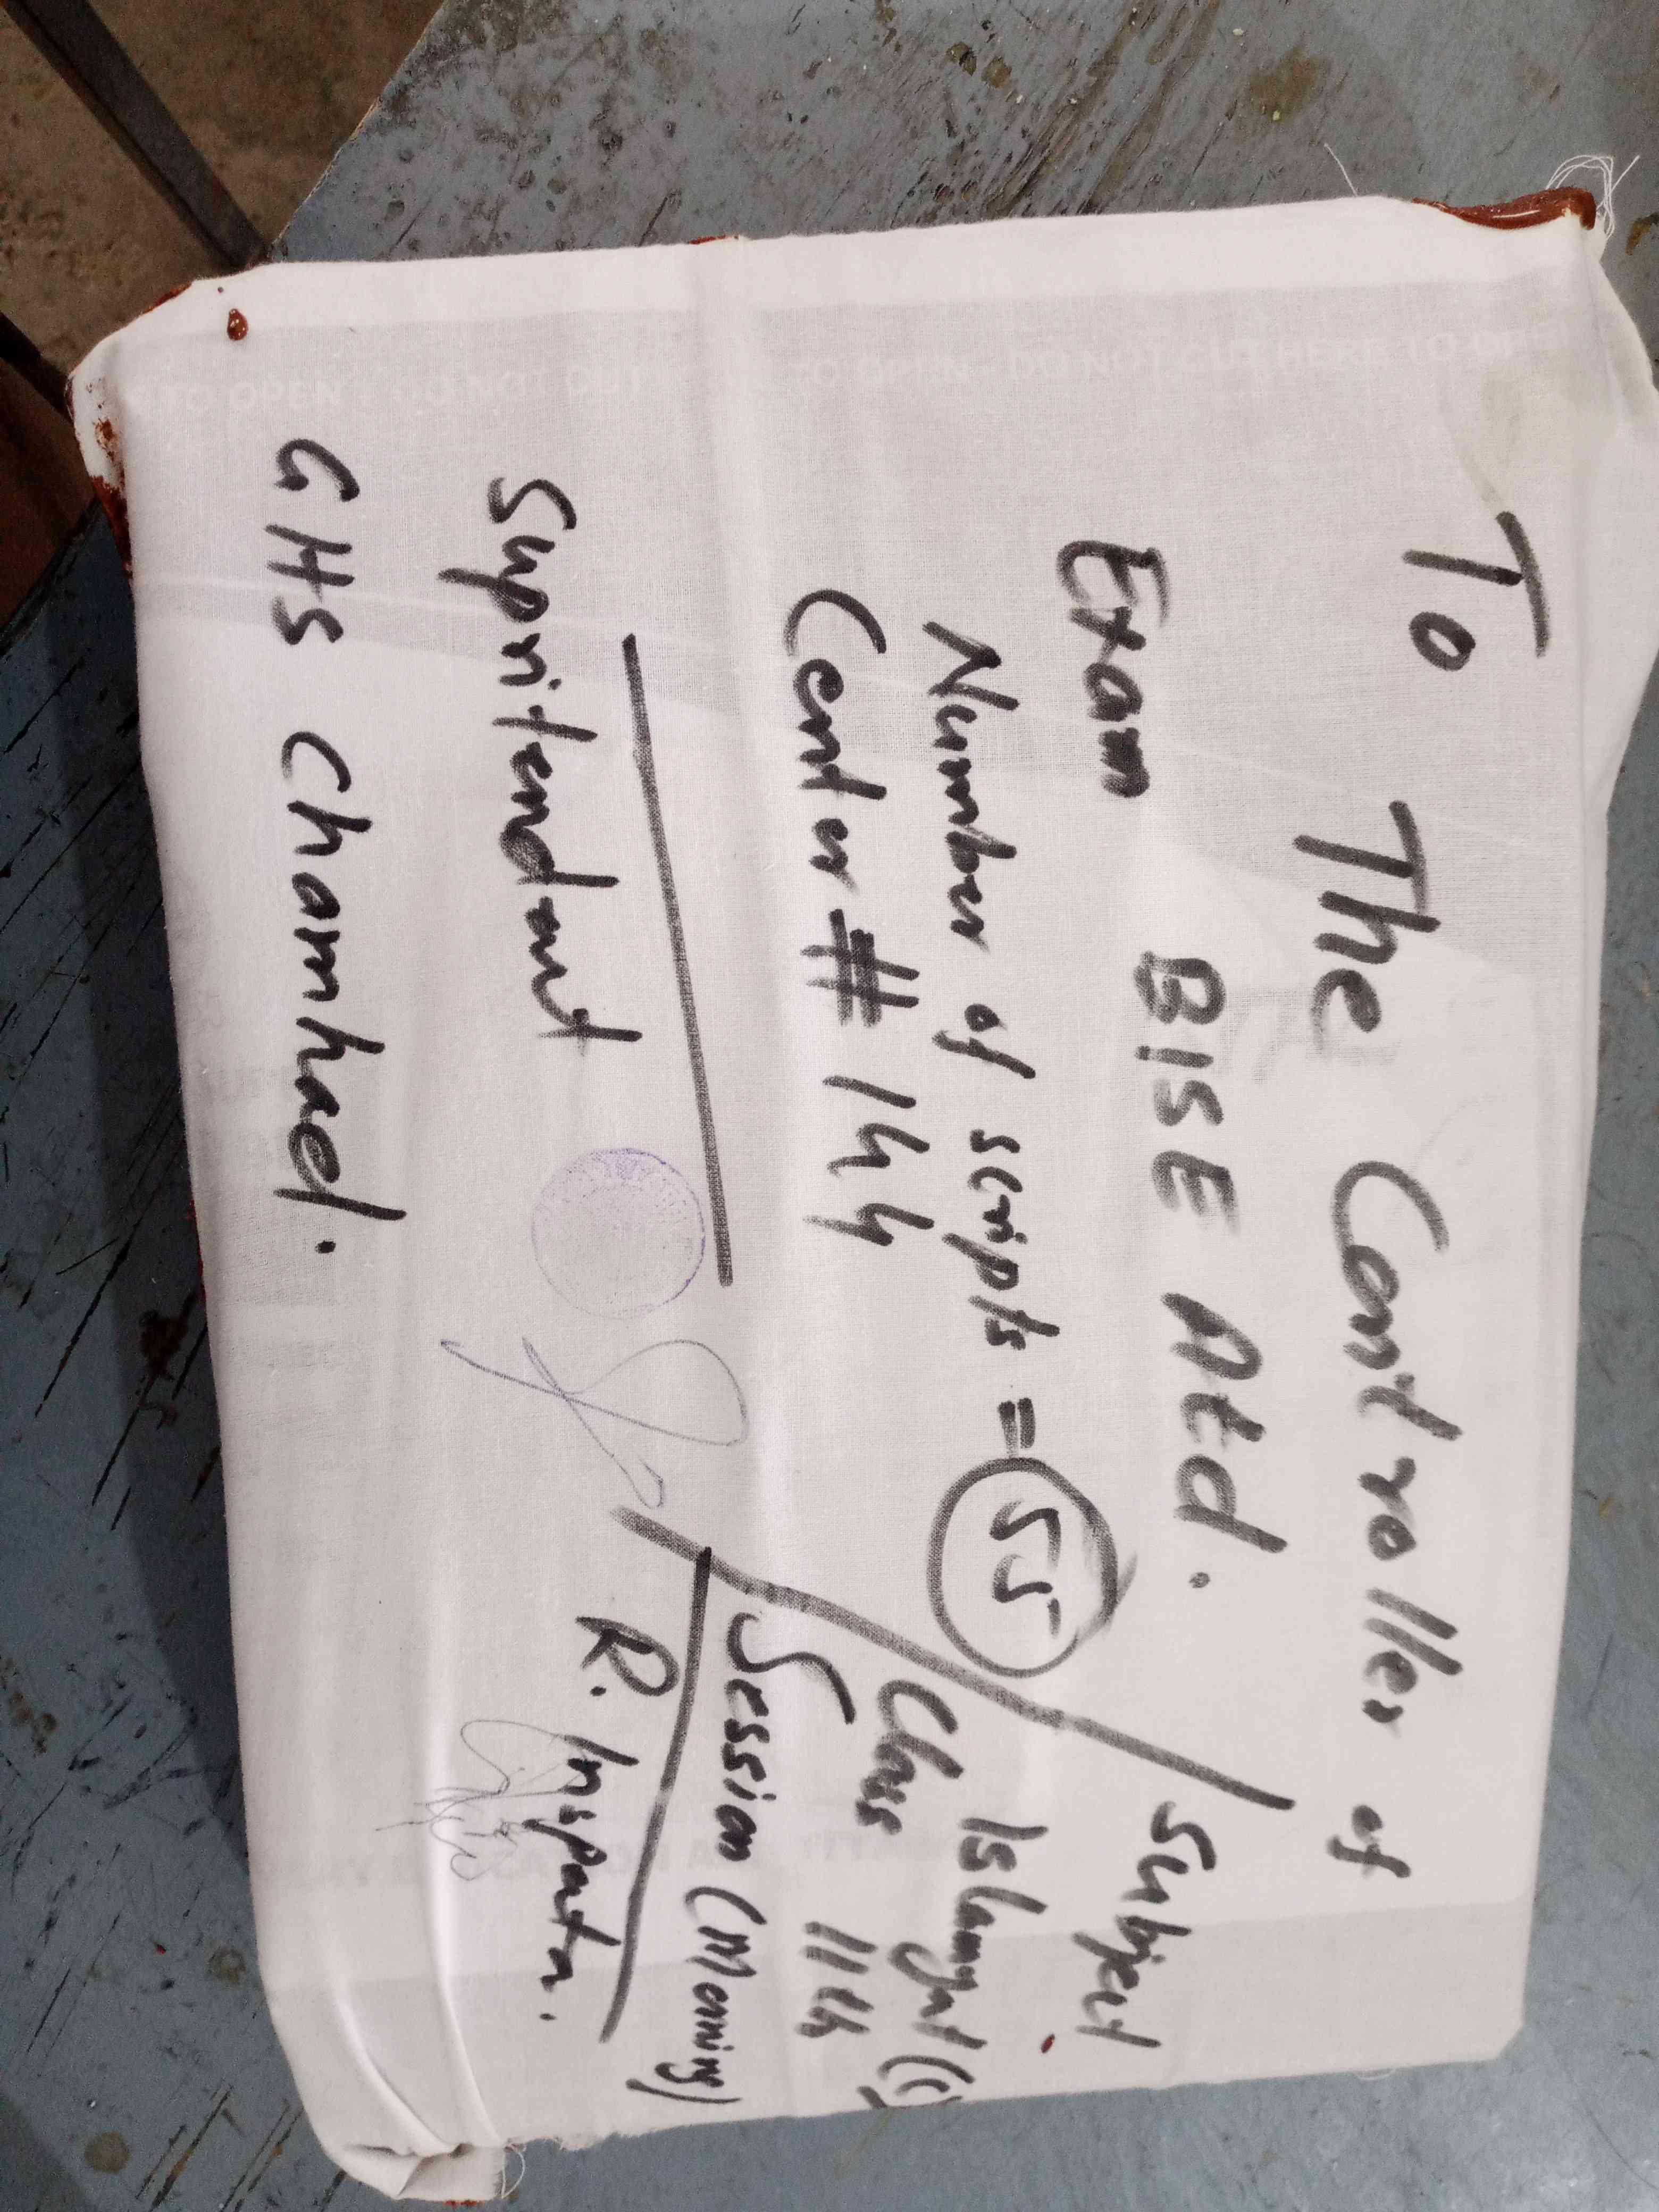 To The Controller of
Exam BISE Atd.
Number of scripts = 55
Center # 144
Supritendant
GHS Chamhad.
Subject
Islamyat (C)
Class 11th
Session (Morning)
R. Inspector.
TO OPEN
DO NOT CUT HERE TO OPEN